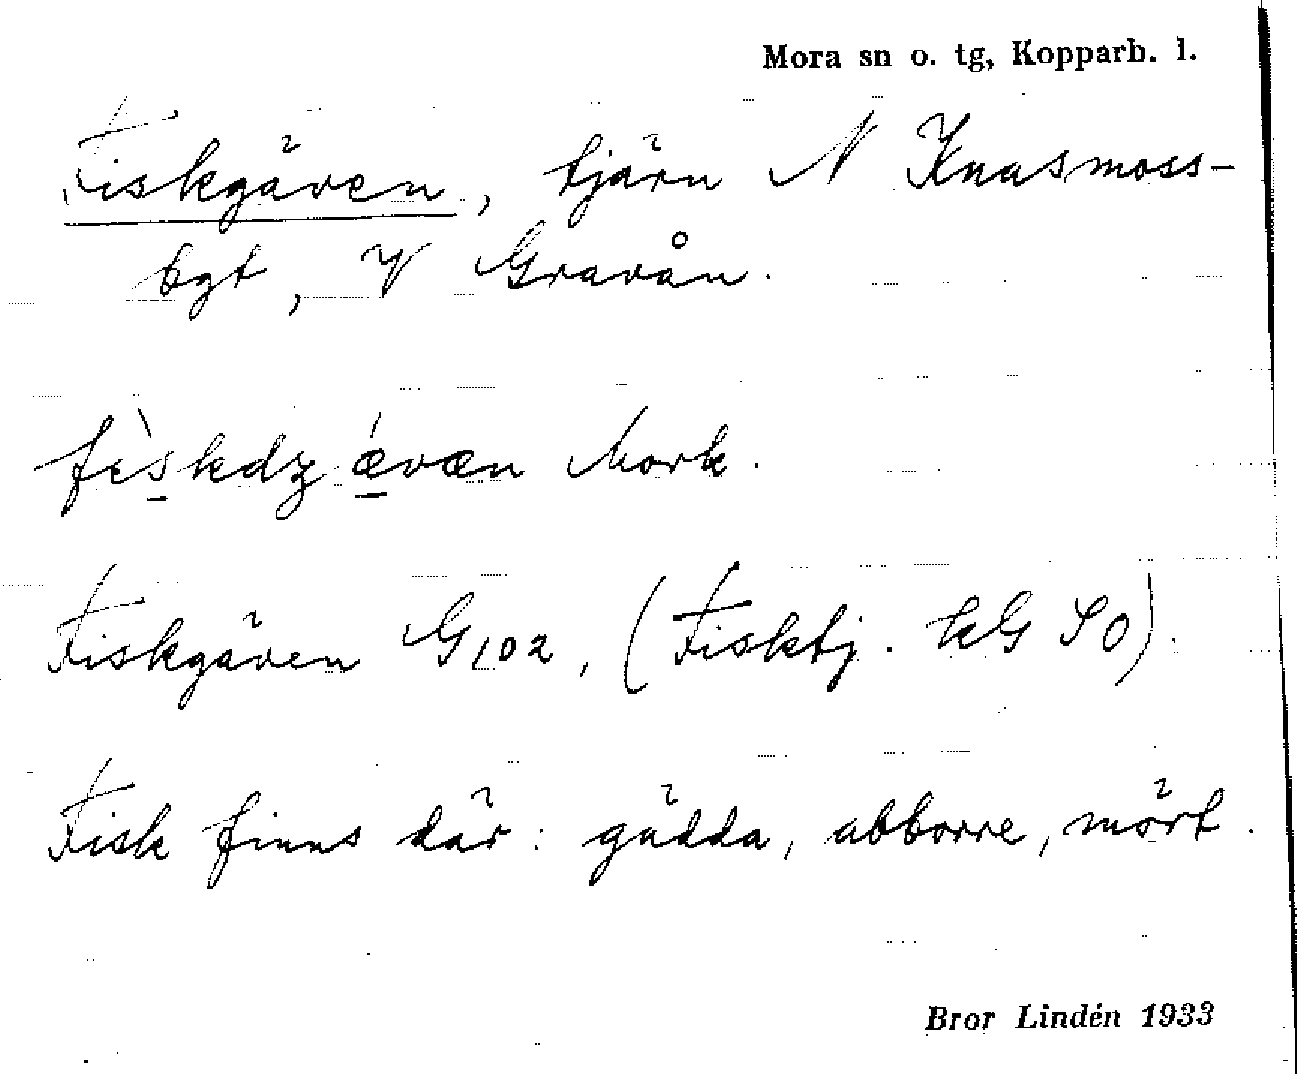 Mora sn o. tg, Kopparb. l.
Fiskgäven, tjärn N Knasmoss-
bgt, V Gravån.
fìskdʒ ǽvæn Mork.
Fiskgäven G102, (Fisktj. kG SO).
Fisk finns där: gädda, abborre, mört.
Bror Lindén 1933